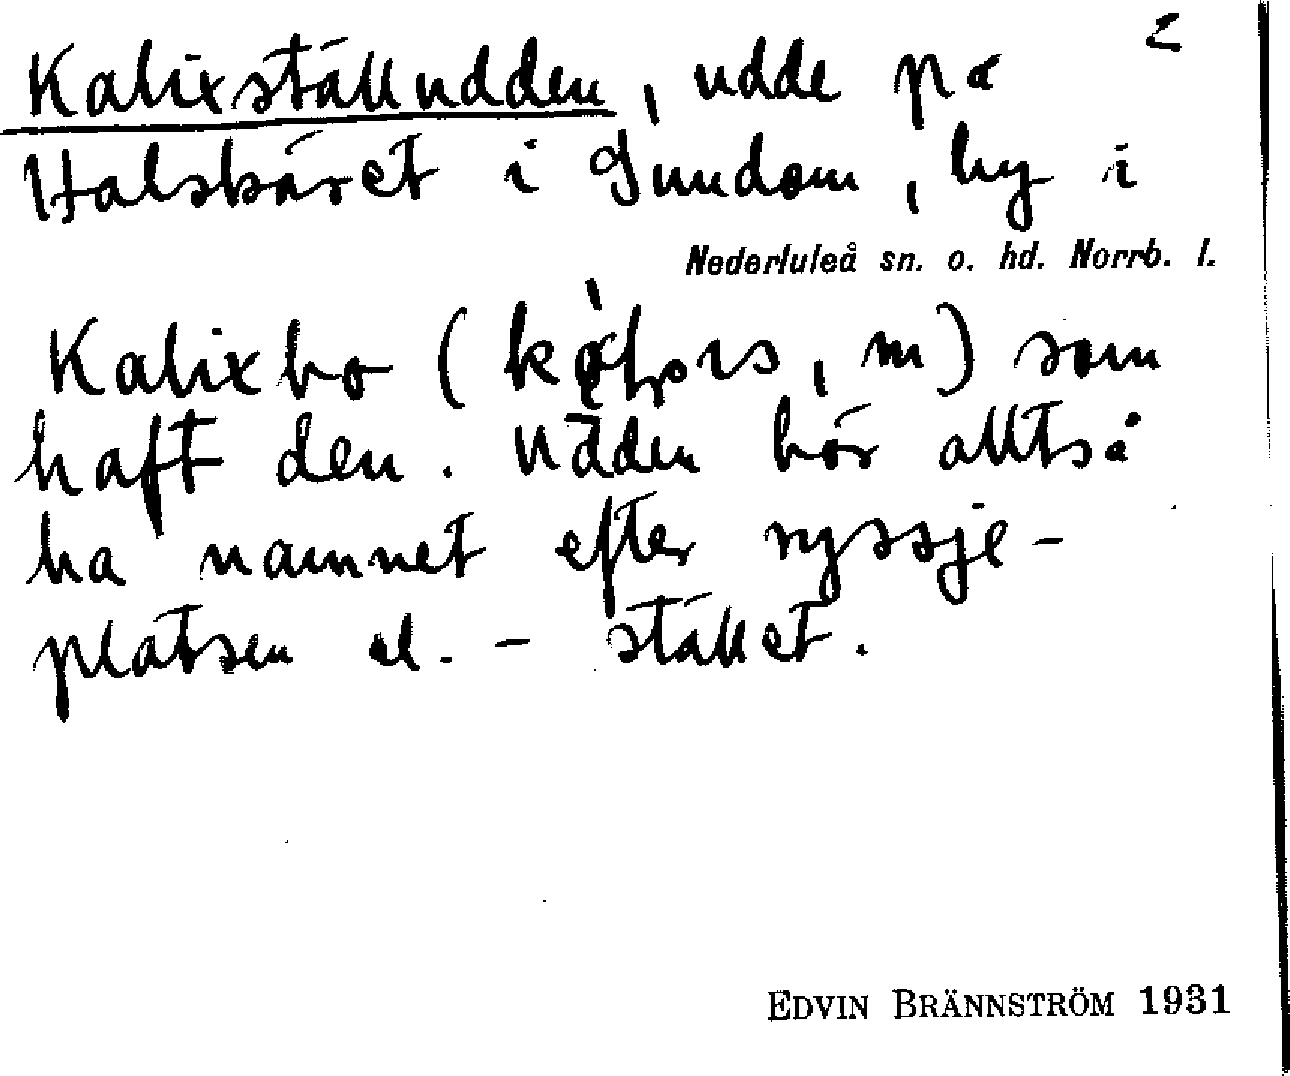 2
Kalixställudden, udde på
Halsskäret i Sundom, by i
Nederluleå sn. o. hd. Norrb. l.
Kalixbo (, m) som
haft den. Udden bör alltså
ha namnet efter ryssje-
platsen el. - stället.
EDVIN BRÄNNSTRÖM 1931